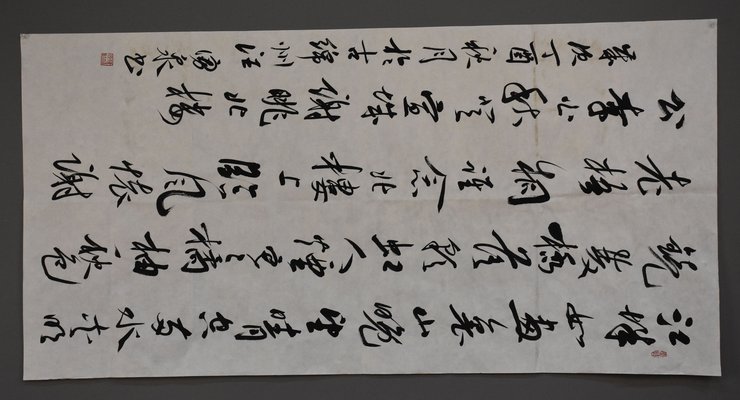 江城如画里山晓望晴空两水夹明
镜双桥落彩虹人烟寒橘柚秋色
老梧桐谁念北楼上临风怀谢
公 李白秋登宣城谢朓北楼
岁次丁酉秋月於古锦州汪书